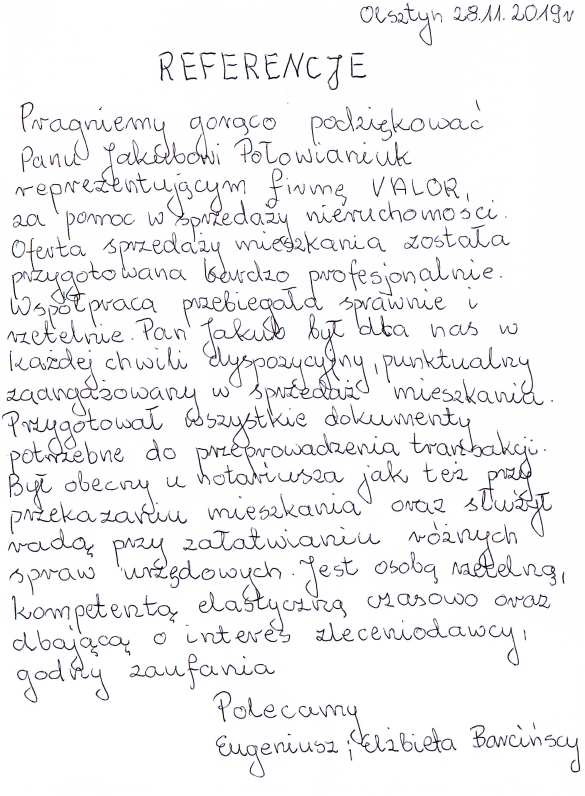 Olsztyn 28.11.2019r
REFERENCJE
Pragniemy gorąco podziękować
Panu Jakubowi Połowianiuk
reprezentującym firmę VALOR,
za pomoc w sprzedaży nieruchomości.
Oferta sprzedaży mieszkania została
przygotowana bardzo profesjonalnie.
Współpraca przebiegała sprawnie i
rzetelnie. Pan Jakub był dla nas w
każdej chwili dyspozycyjny, punktualny
zaangażowany w sprzedaż mieszkania.
Przygotował wszystkie dokumenty
potrzebne do przeprowadzenia tranbakcji.
Był obecny u notariusza jak też przy
przekazaniu mieszkania oraz służył
radą przy załatwianiu różnych
spraw urzędowych. Jest osobą rzetelną,
kompetentą elastyczną czasowo oraz
dbającą o interes zleceniodawcy,
godny zaufania
Polecamy
Eugeniusz i Elżbieta Barcińscy